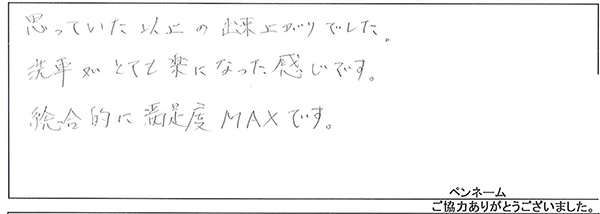 思っていた以上の出来上がりでした。
洗車がとても楽になった感じです。
総合的に満足度MAXです。
ペンネーム
ご協力ありがとうございました。